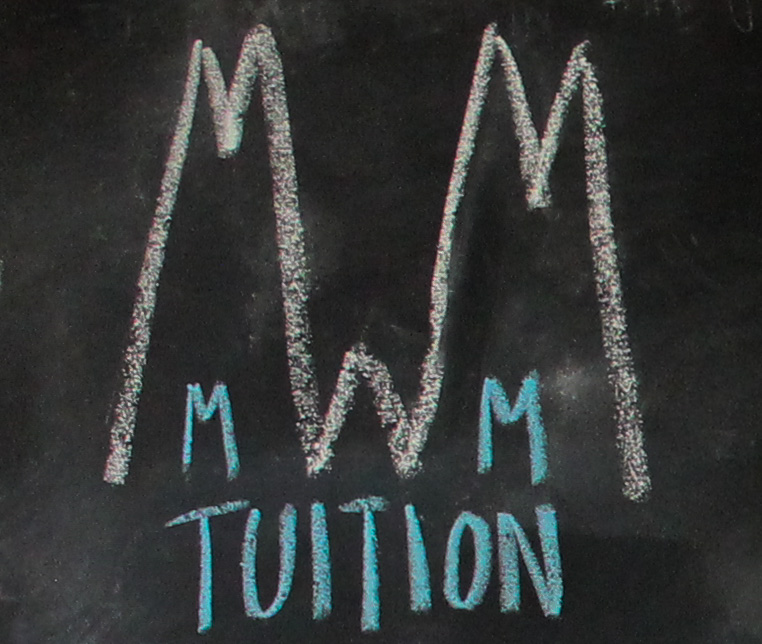 MWM
M M
TUITION